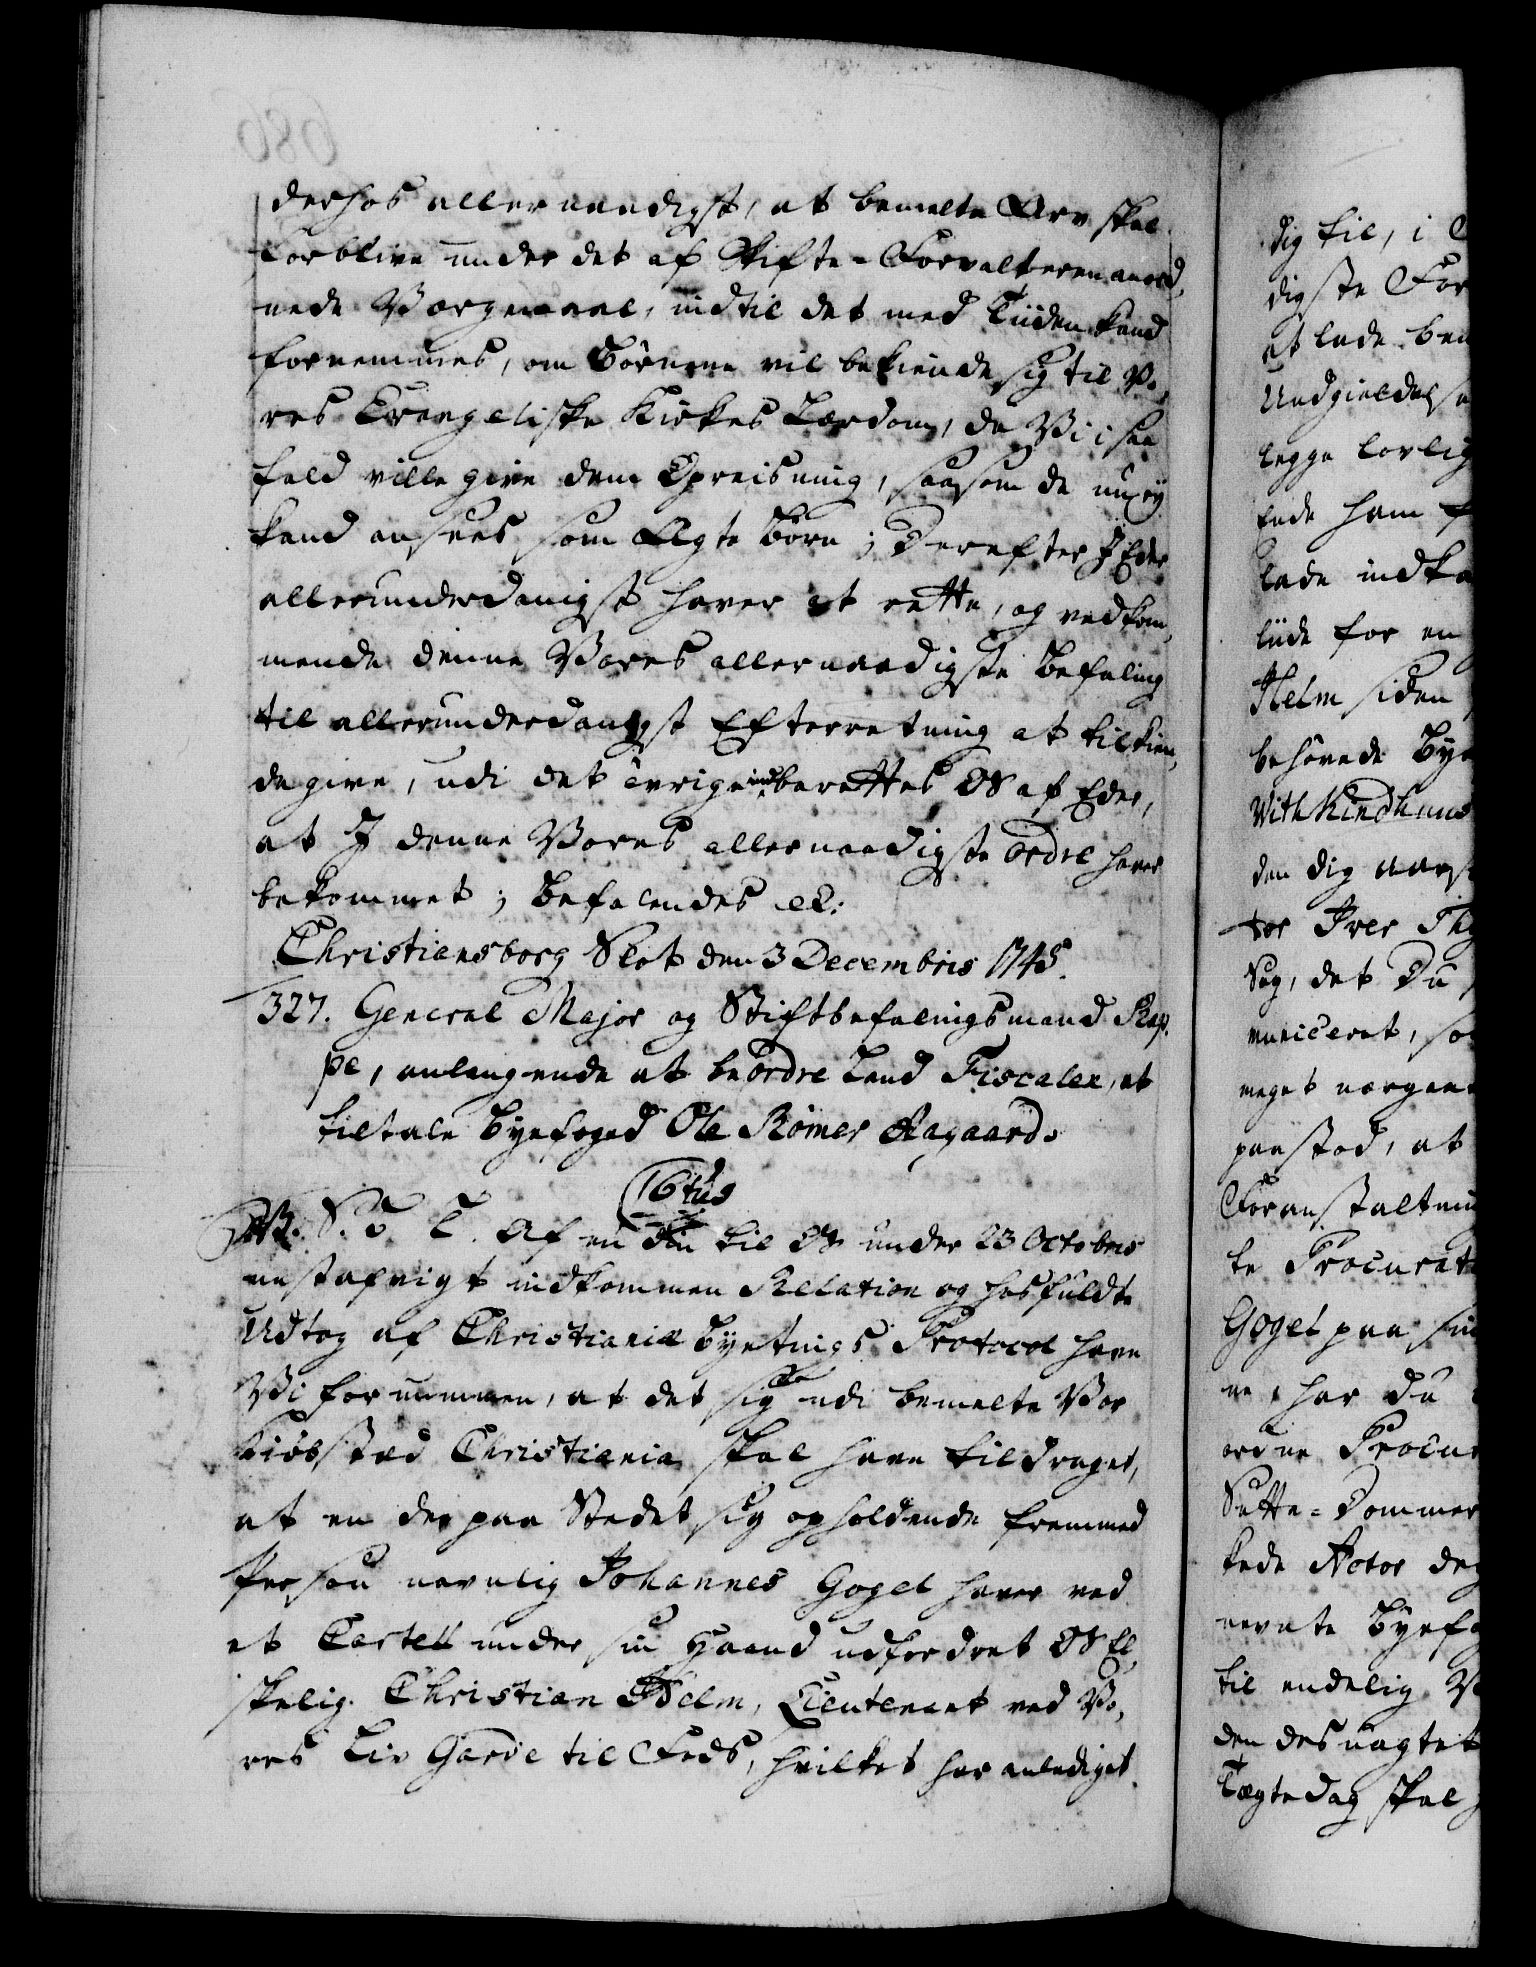 derhos allernaadigst, at bemelte Arv skal
forblive under det af Skifte-Forvalteren anord,
nede Vœrgemaal, indtil det med Tiiden kand
fornemmes, om Børnene vil bekiende sig til Vo,
res Evangeliske Kirkes Lærdom, da Vi i saa
fald ville give dem Opreisning, saasom de nu ey
kand ansees som Ægte Børn; Derefter I Eder
allerunderdanigst haver at rette, og vedkom,
mende denne Vores allernaadigste Befaling
til allerunderdanigst Efterretning at tilkien,
degive, udi det øvrige indberettes OS af Eder,
at I denne Vores allernaadigste ordre haver
bekommet; Befalendes etc:
Christiansborg Slot den 3 Decembris 1745.
327. General Major og Stiftbefalingsmand Rap,
pe, anlangende at beordre Land Fiscalen, at
tiltale Byefoged Ole Rømer Aagaard.
16tus
S. T. Af en din til OS under 23 Octobris
nestafvigt indkommen Relation og hosfuldte
Udtog af Christianiæ Byetings Protocol have
Vi fornummen, at det sig udi bemelte Vor
Kiøbstæd Christiania skal have tildraget,
at en der paa Stedet sig opholdende fremmed
Person navnlig Johannes Gogel haver ved
et Cartell under sin Haand udfordret OS El,
skelig Christian Helm, Lieutenant ved Vo,
res Liv Garde til Fods, hvilket har anlediget
686
dig til, i
digste For
at lade ben
Undgieldelse
legge lovlig
lade ham
lade indka
lide for en
Helm siden
behørede Bye
With Kindhuus
den dig
tor Iver Thy
Sag, det Du
municeret, so
meget nærgaa
paastod, at
Foranstaltning
te Procurat
Gogel paa sin
ne, har du
ordne Procur
Sætte-Dommer
kede Actor
nevnte Byefo
til endelig
den des uagtet
Tægtedag skal